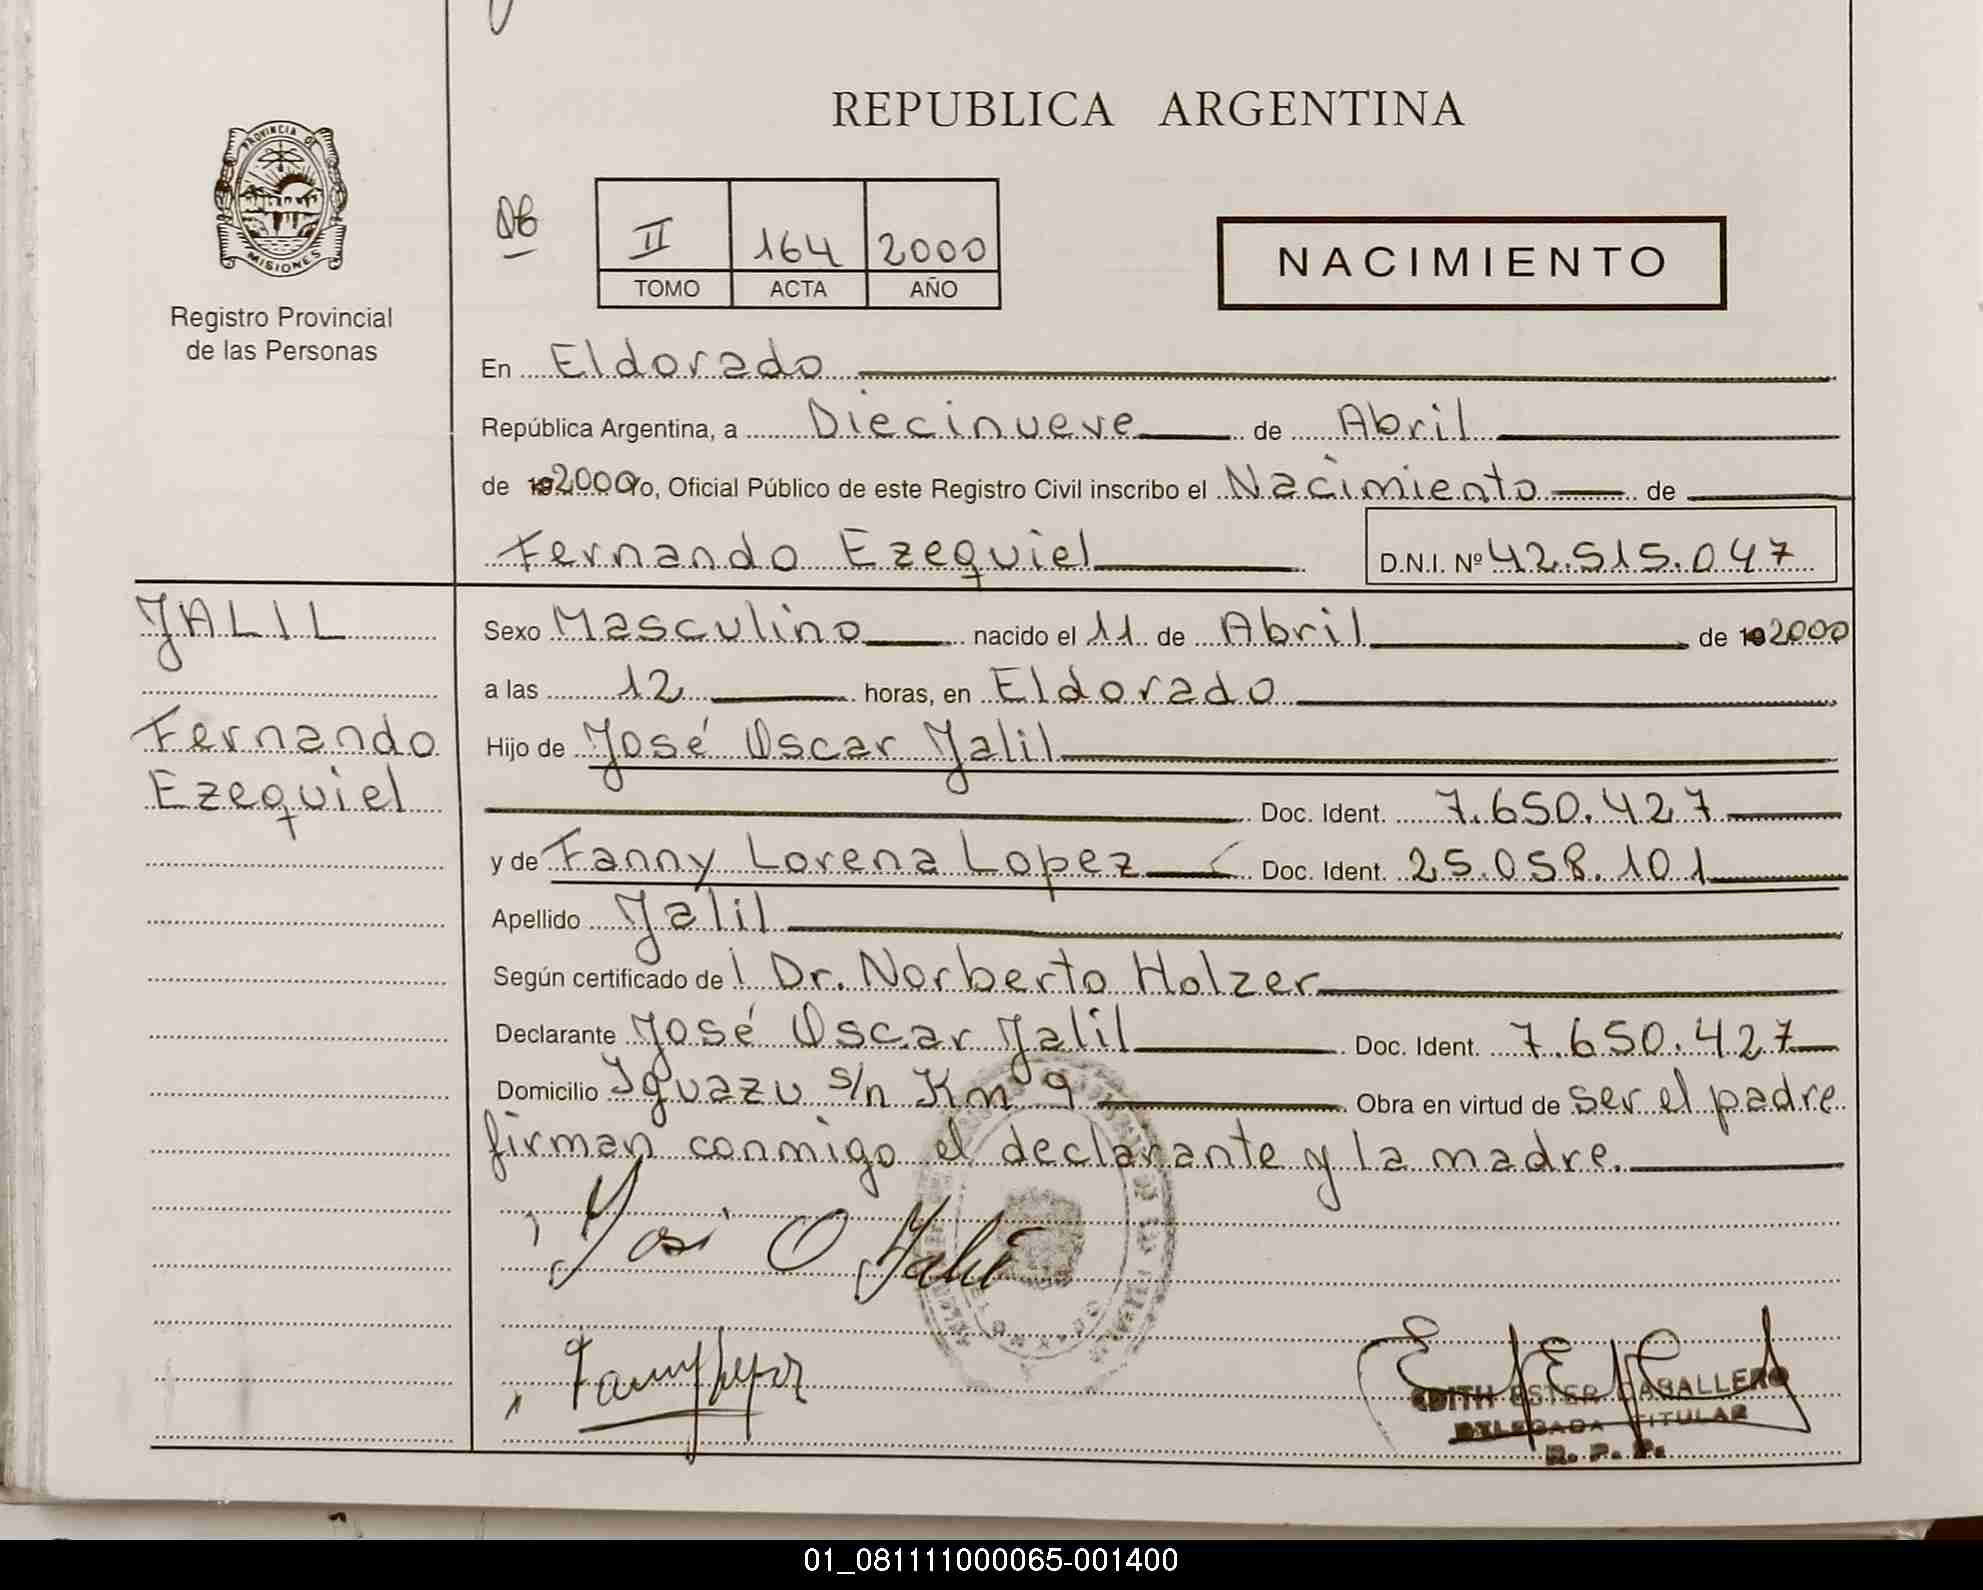 REPUBLICA ARGENTINA
PROVINCIA DE
MISIONES
Registro Provincial
de las Personas
DB
II 164 2000
TOMO ACTA AÑO
NACIMIENTO
En Eldorado
República Argentina, a Diecinueve de Abril
de 19 2000 Yo, Oficial Público de este Registro Civil inscribo el Nacimiento de
Fernando Ezequiel D.N.I. Nº 42.515.047
JALIL
Fernando
Ezequiel
Sexo Masculino nacido el 11 de Abril de 19 2000
a las 12 horas, en Eldorado
Hijo de José Oscar Jalil
Doc. Ident. 7.650.427
y de Fanny Lorena Lopez Doc. Ident. 25.058.101
Apellido Jalil
Según certificado de l Dr. Norberto Holzer
Declarante José Oscar Jalil Doc. Ident. 7.650.427
Domicilio Iguazu s/n Km 9 Obra en virtud de ser el padre
firman conmigo el declarante y la madre.
José O Jalil
Fanny Lopez
EDITH ESTER CABALLERO
DELEGADA TITULAR
R. P. P.
01_081111000065-001400